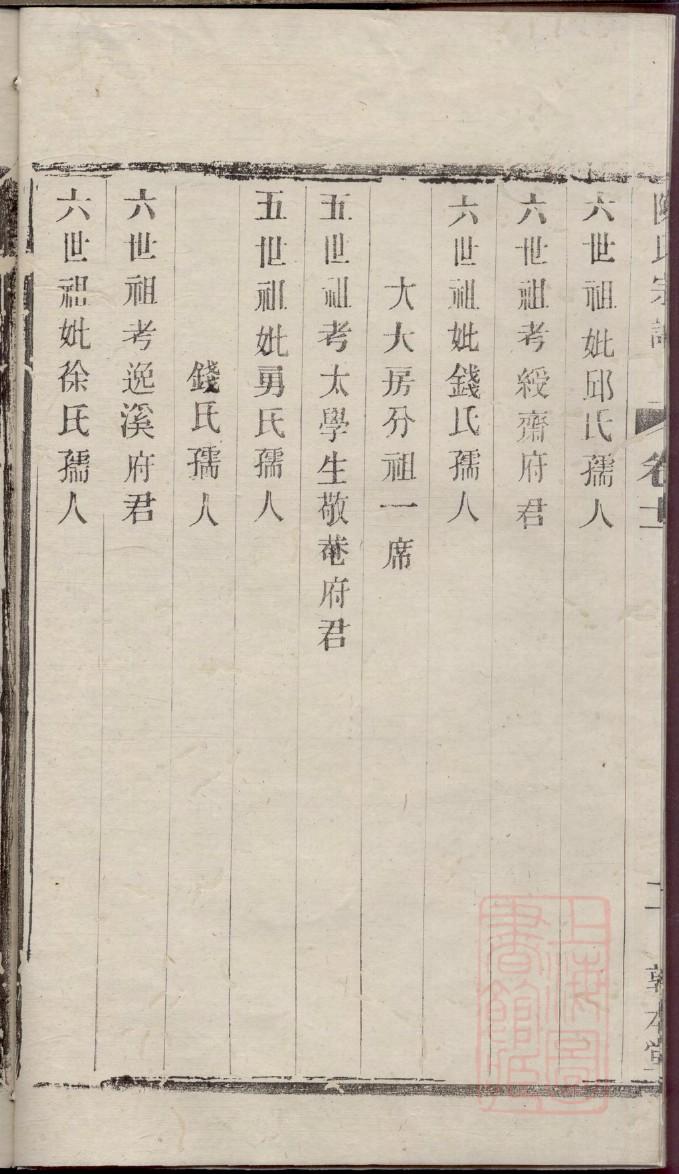 陳氏宗譜 卷十二 二 敦本堂
六世祖妣邱氏孺人
六世祖考綬齋府君
六世祖妣錢氏孺人
大大房分祖一席
五世祖考太學生敬菴府君
五世祖妣勇氏孺人
錢氏孺人
六世祖考逸溪府君
六世祖妣徐氏孺人
上海圖書館藏